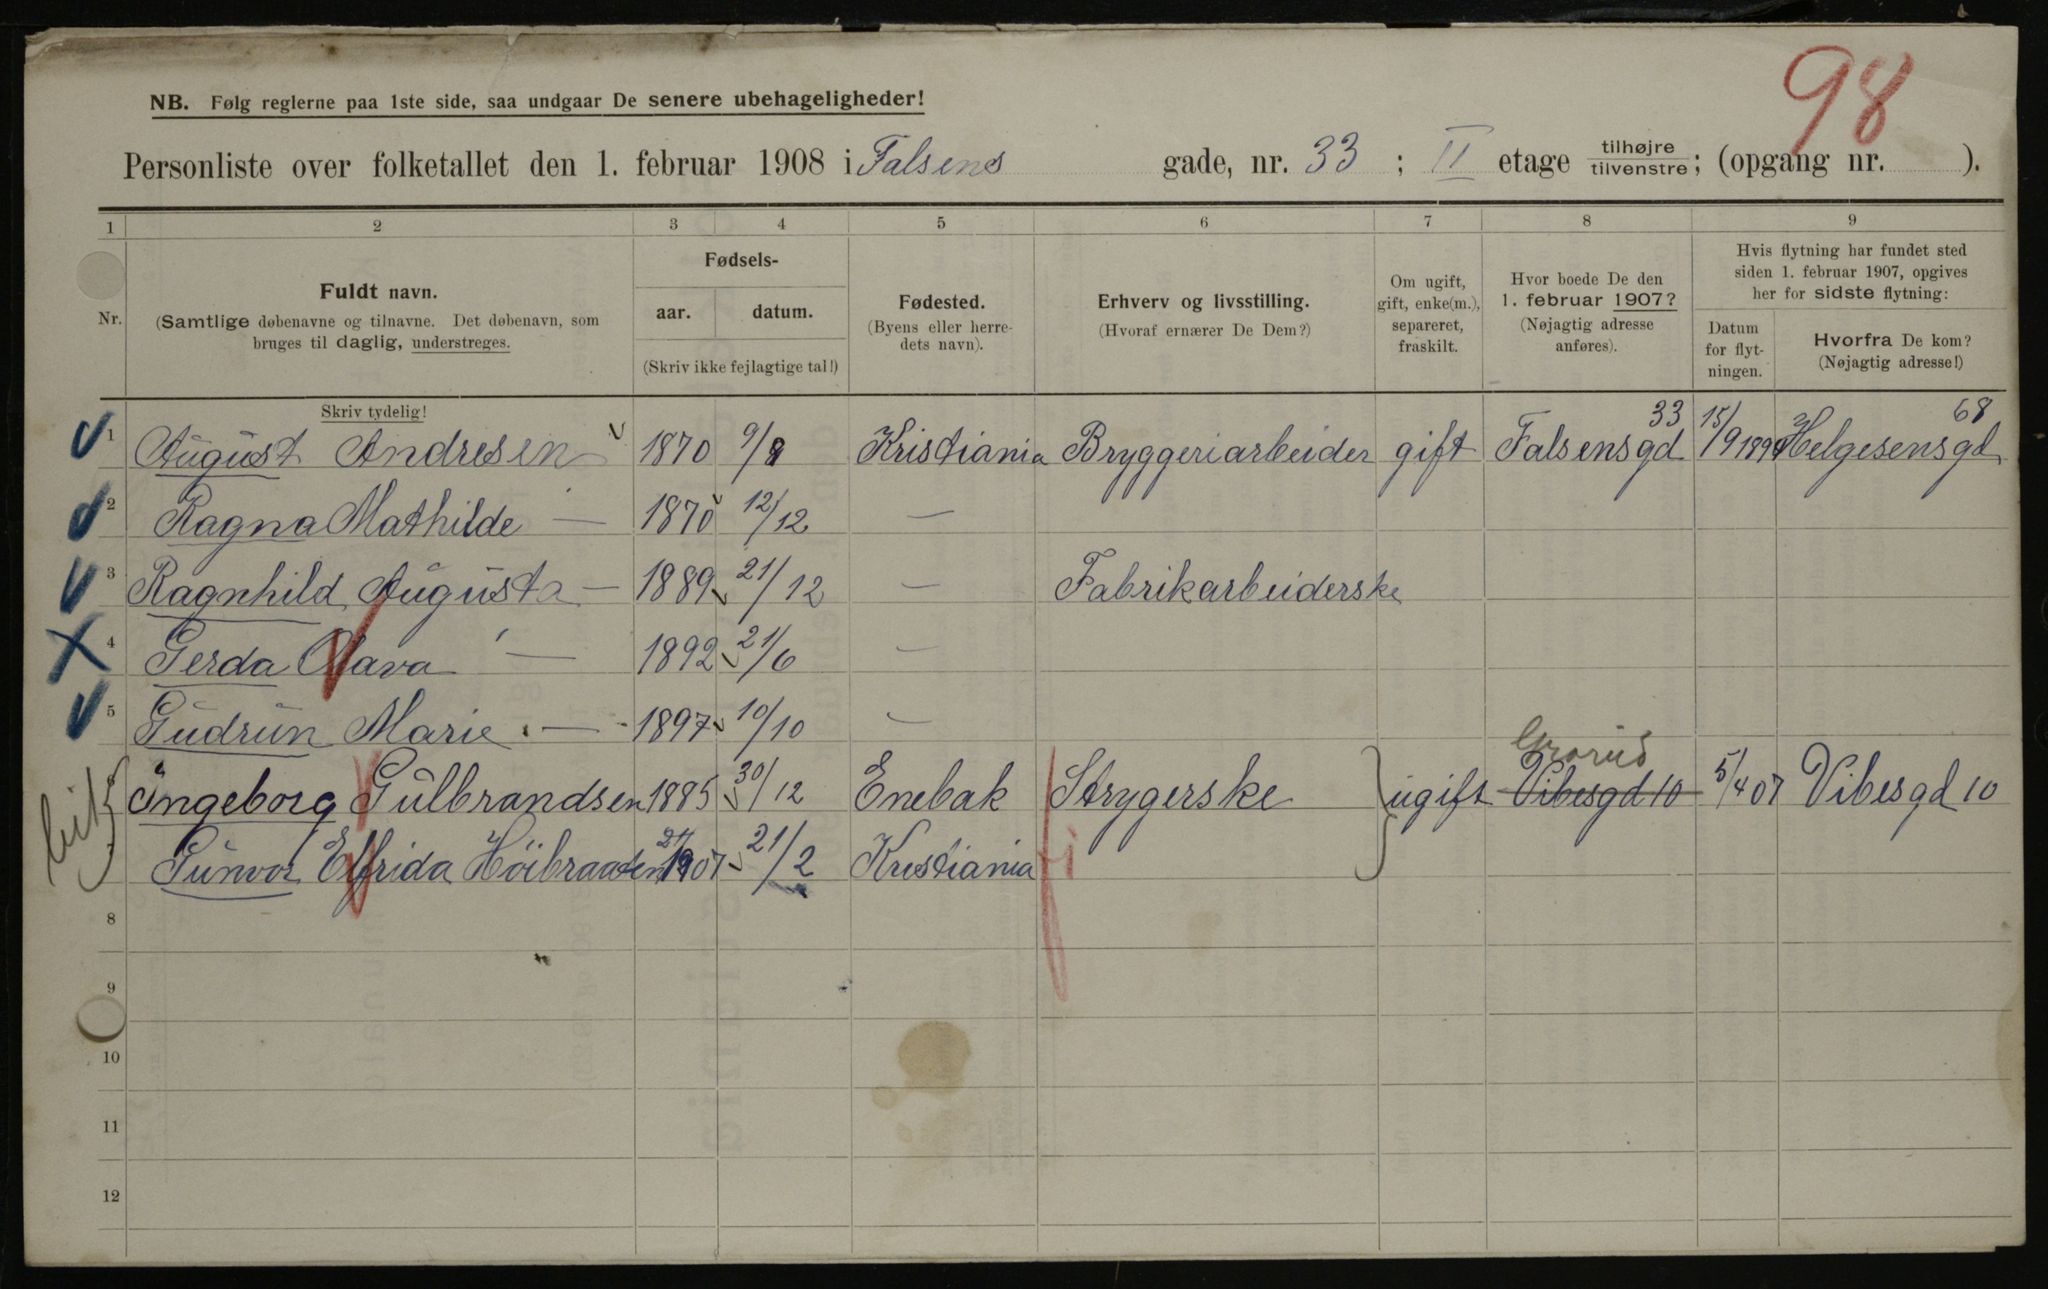 98
NB. Følg reglerne paa 1ste side, saa undgaar De senere ubehageligheder!
Personliste over folketallet den 1. februar 1908 i Falsens gade, nr. 33 ; II etage tilhøjre tilvenstre; (opgang nr. ).
1 2 3 4 5 6 7 8 9
Nr.
Fuldt navn.
(Samtlige døbenavne og tilnavne. Det døbenavn, som
bruges til daglig, understreges.
Fødsels-
aar. datum.
(Skriv ikke fejlagtige tal!)
Fødested.
(Byens eller herre-
dets navn).
Erhverv og livsstilling.
(Hvoraf ernærer De Dem?)
Om ugift,
gift, enke(m.),
separeret,
fraskilt.
Hvor boede De den
1. februar 1907?
(Nøjagtig adresse
anføres).
Hvis flytning har fundet sted
siden 1. februar 1907, opgives
her for sidste flytning:
Datum
for flyt-
ningen.
Hvorfra De kom?
(Nøjagtig adresse!)
Skriv tydelig!
1 August Andresen 1870 9/8 Kristiania Bryggeriarbeider gift Falsensgd 33 15/9 Helgesensgd 68
2 Ragna Mathilde — 1870 12/12 —
3 Ragnhild Augusta — 1889 21/12 — Fabrikarbeiderske
4 Gerda Olava — 1892 21/6 —
5 Gudrun Marie. — 1897 10/10 —
Grorud
6 Ingeborg Gulbrandsen 1885 30/12 Enebak Strygerske ugift Vibesgd 10 5/4 07 Vibesgd 10
7 Gunvor Elfrida Höibraaten 1907 21/2 Kristiania
8
9
10
11
12